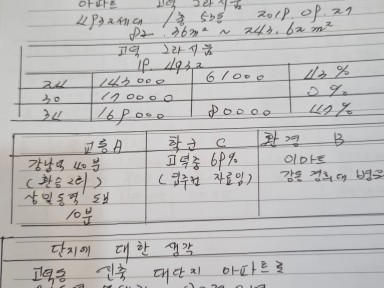 아파트 고덕 그라시움
4932세대 / 총 53동 2019.09.27
82.36m² ~ 243.62m²
고덕 그라시움
1P 4932
24 143000 61000 43%
30 170000 0%
34 169000 80000 47%
교통A 학군 C 환경 B
강남역 40분 고덕중 69% 이마트
(환승2회) (입주전 자료임) 강동 경희대 병원
상일동역 도보
10분
단지에 대한 생각
고덕동 신축 대단지 아파트로